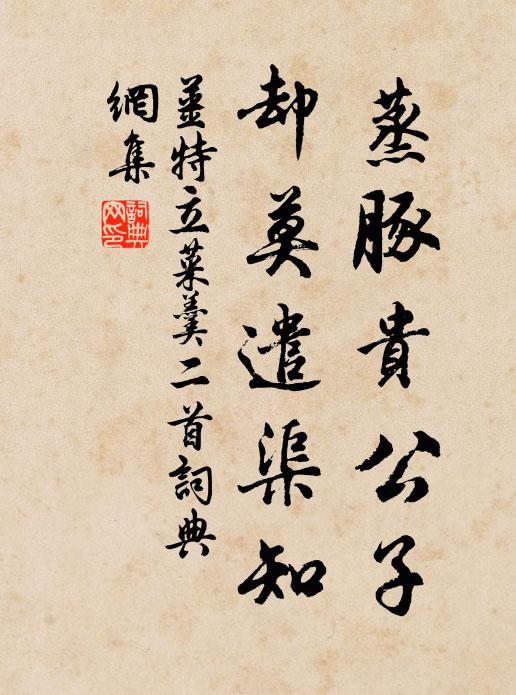 蒸豚貴公子
却莫遣渠知
姜特立菜羹二首詞典
網集
詞典網印